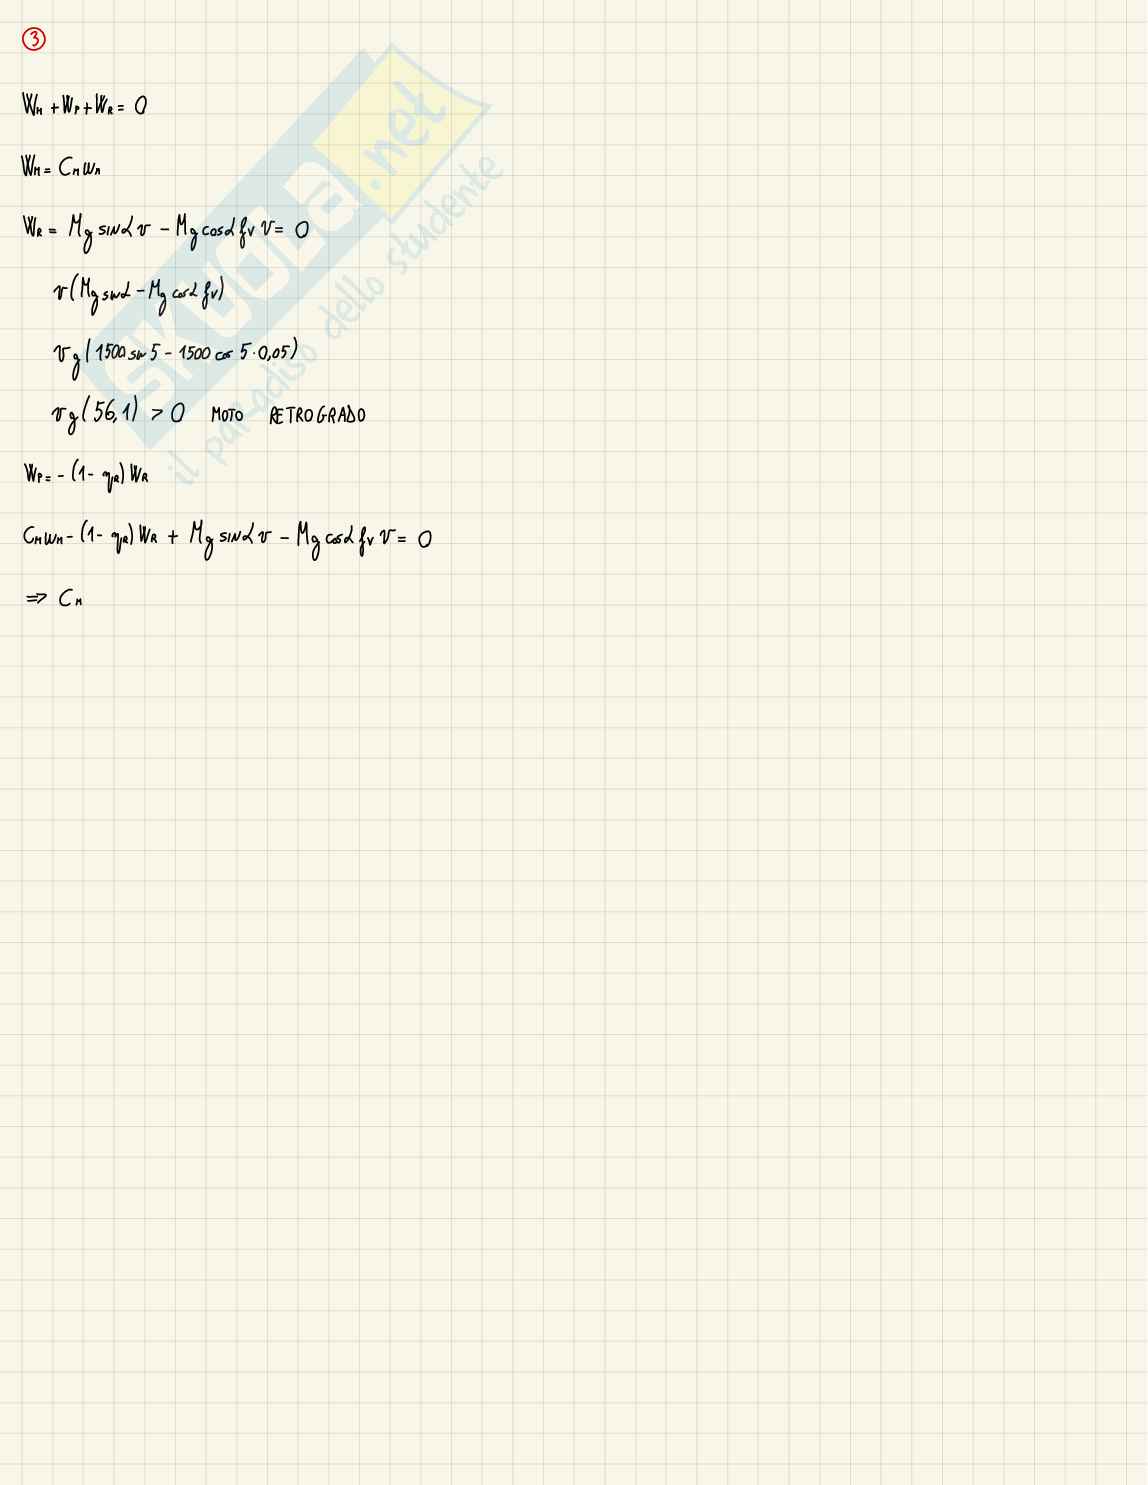 3
W_M + W_P + W_R = 0
W_M = C_M ω_M
W_R = Mg sinα v - Mg cosα f_v v = 0
v(Mg sinα - Mg cosα f_v)
vg(1500 sin 5 - 1500 cos 5·0,05)
vg(56,1) > 0 MOTO RETROGRADO
W_P = -(1 - η_R) W_R
C_M ω_M - (1 - η_R) W_R + Mg sinα v - Mg cosα f_v v = 0
⇒ C_M
SKUOLA.net
il paradiso dello studente